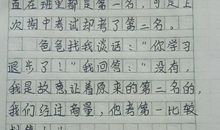 直在班里都是第一名，可是上
次期中考试却考了第二名。
爸爸找我谈话："你学习
退步了！"我回答："没有，
我是故意让着原来的第二名的，
我们经过商量，他考第一比较